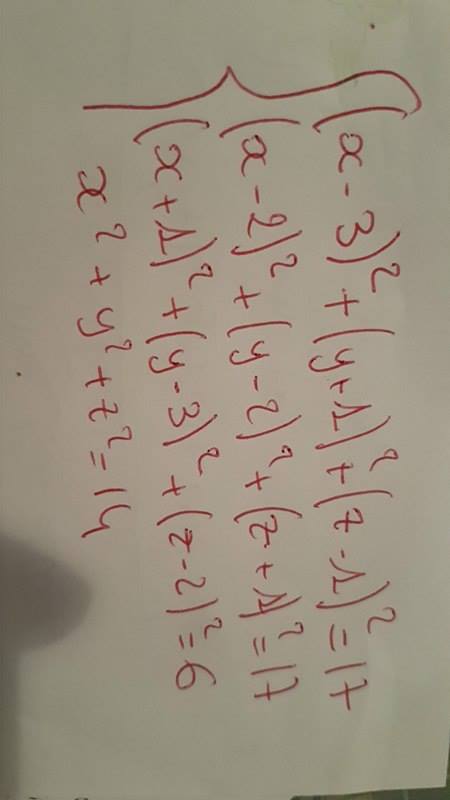 (x - 3)² + (y + 1)² + (z - 1)² = 17
(x - 2)² + (y - 2)² + (z + 1)² = 17
(x + 1)² + (y - 3)² + (z - 2)² = 6
x² + y² + z² = 14